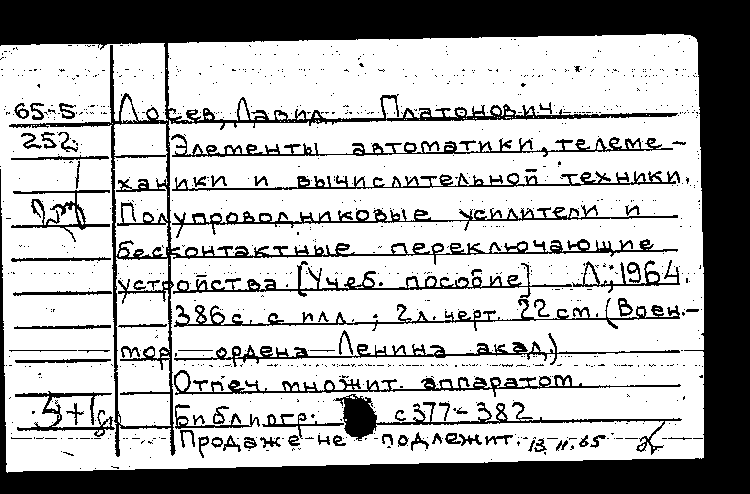 65-5 Лосев, Давид Платонович.
252 Элементы автоматики, телеме-
ханики и вычислительной техники.
Полупроводниковые усилители и
бесконтактные переключающие
устройства. [Учеб. пособие] Л., 1964.
386 с. с илл.; 2 л. черт. 22 см. (Воен.-
мор. ордена Ленина акад.)
Отпеч. множит. аппаратом.
Библиогр: с 377-382.
Продаже не подлежит. 13.11.65